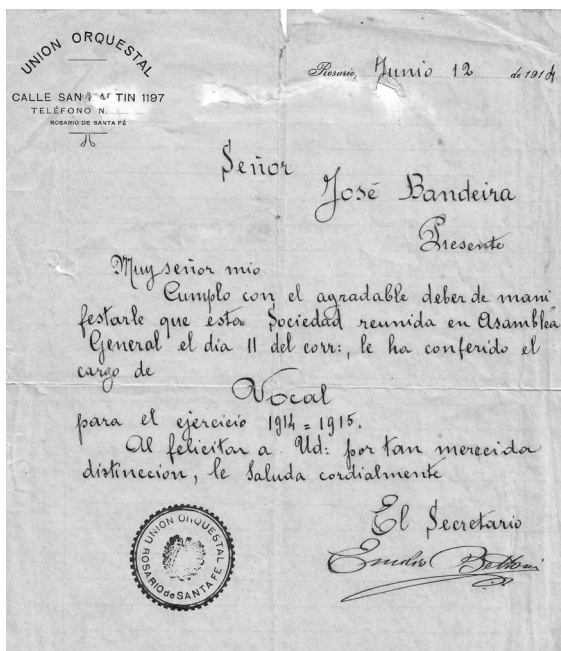 UNION ORQUESTAL
CALLE SAN MARTIN 1197
TELÉFONO N.
ROSARIO DE SANTA FÉ
Rosario, Junio 12 de 1914
Señor
José Bandeira
Presente
Muy señor mio
Cumplo con el agradable deber de mani
festarle que esta Sociedad reunida en Asamblea
General el dia 11 del corr:, le ha conferido el
cargo de
Vocal
para el ejercicio 1914 = 1915.
Al felicitar a Ud: por tan merecida
distinccion, le saluda cordialmente
El Secretario
Emilio
UNION ORQUESTAL
ROSARIO de SANTA FE